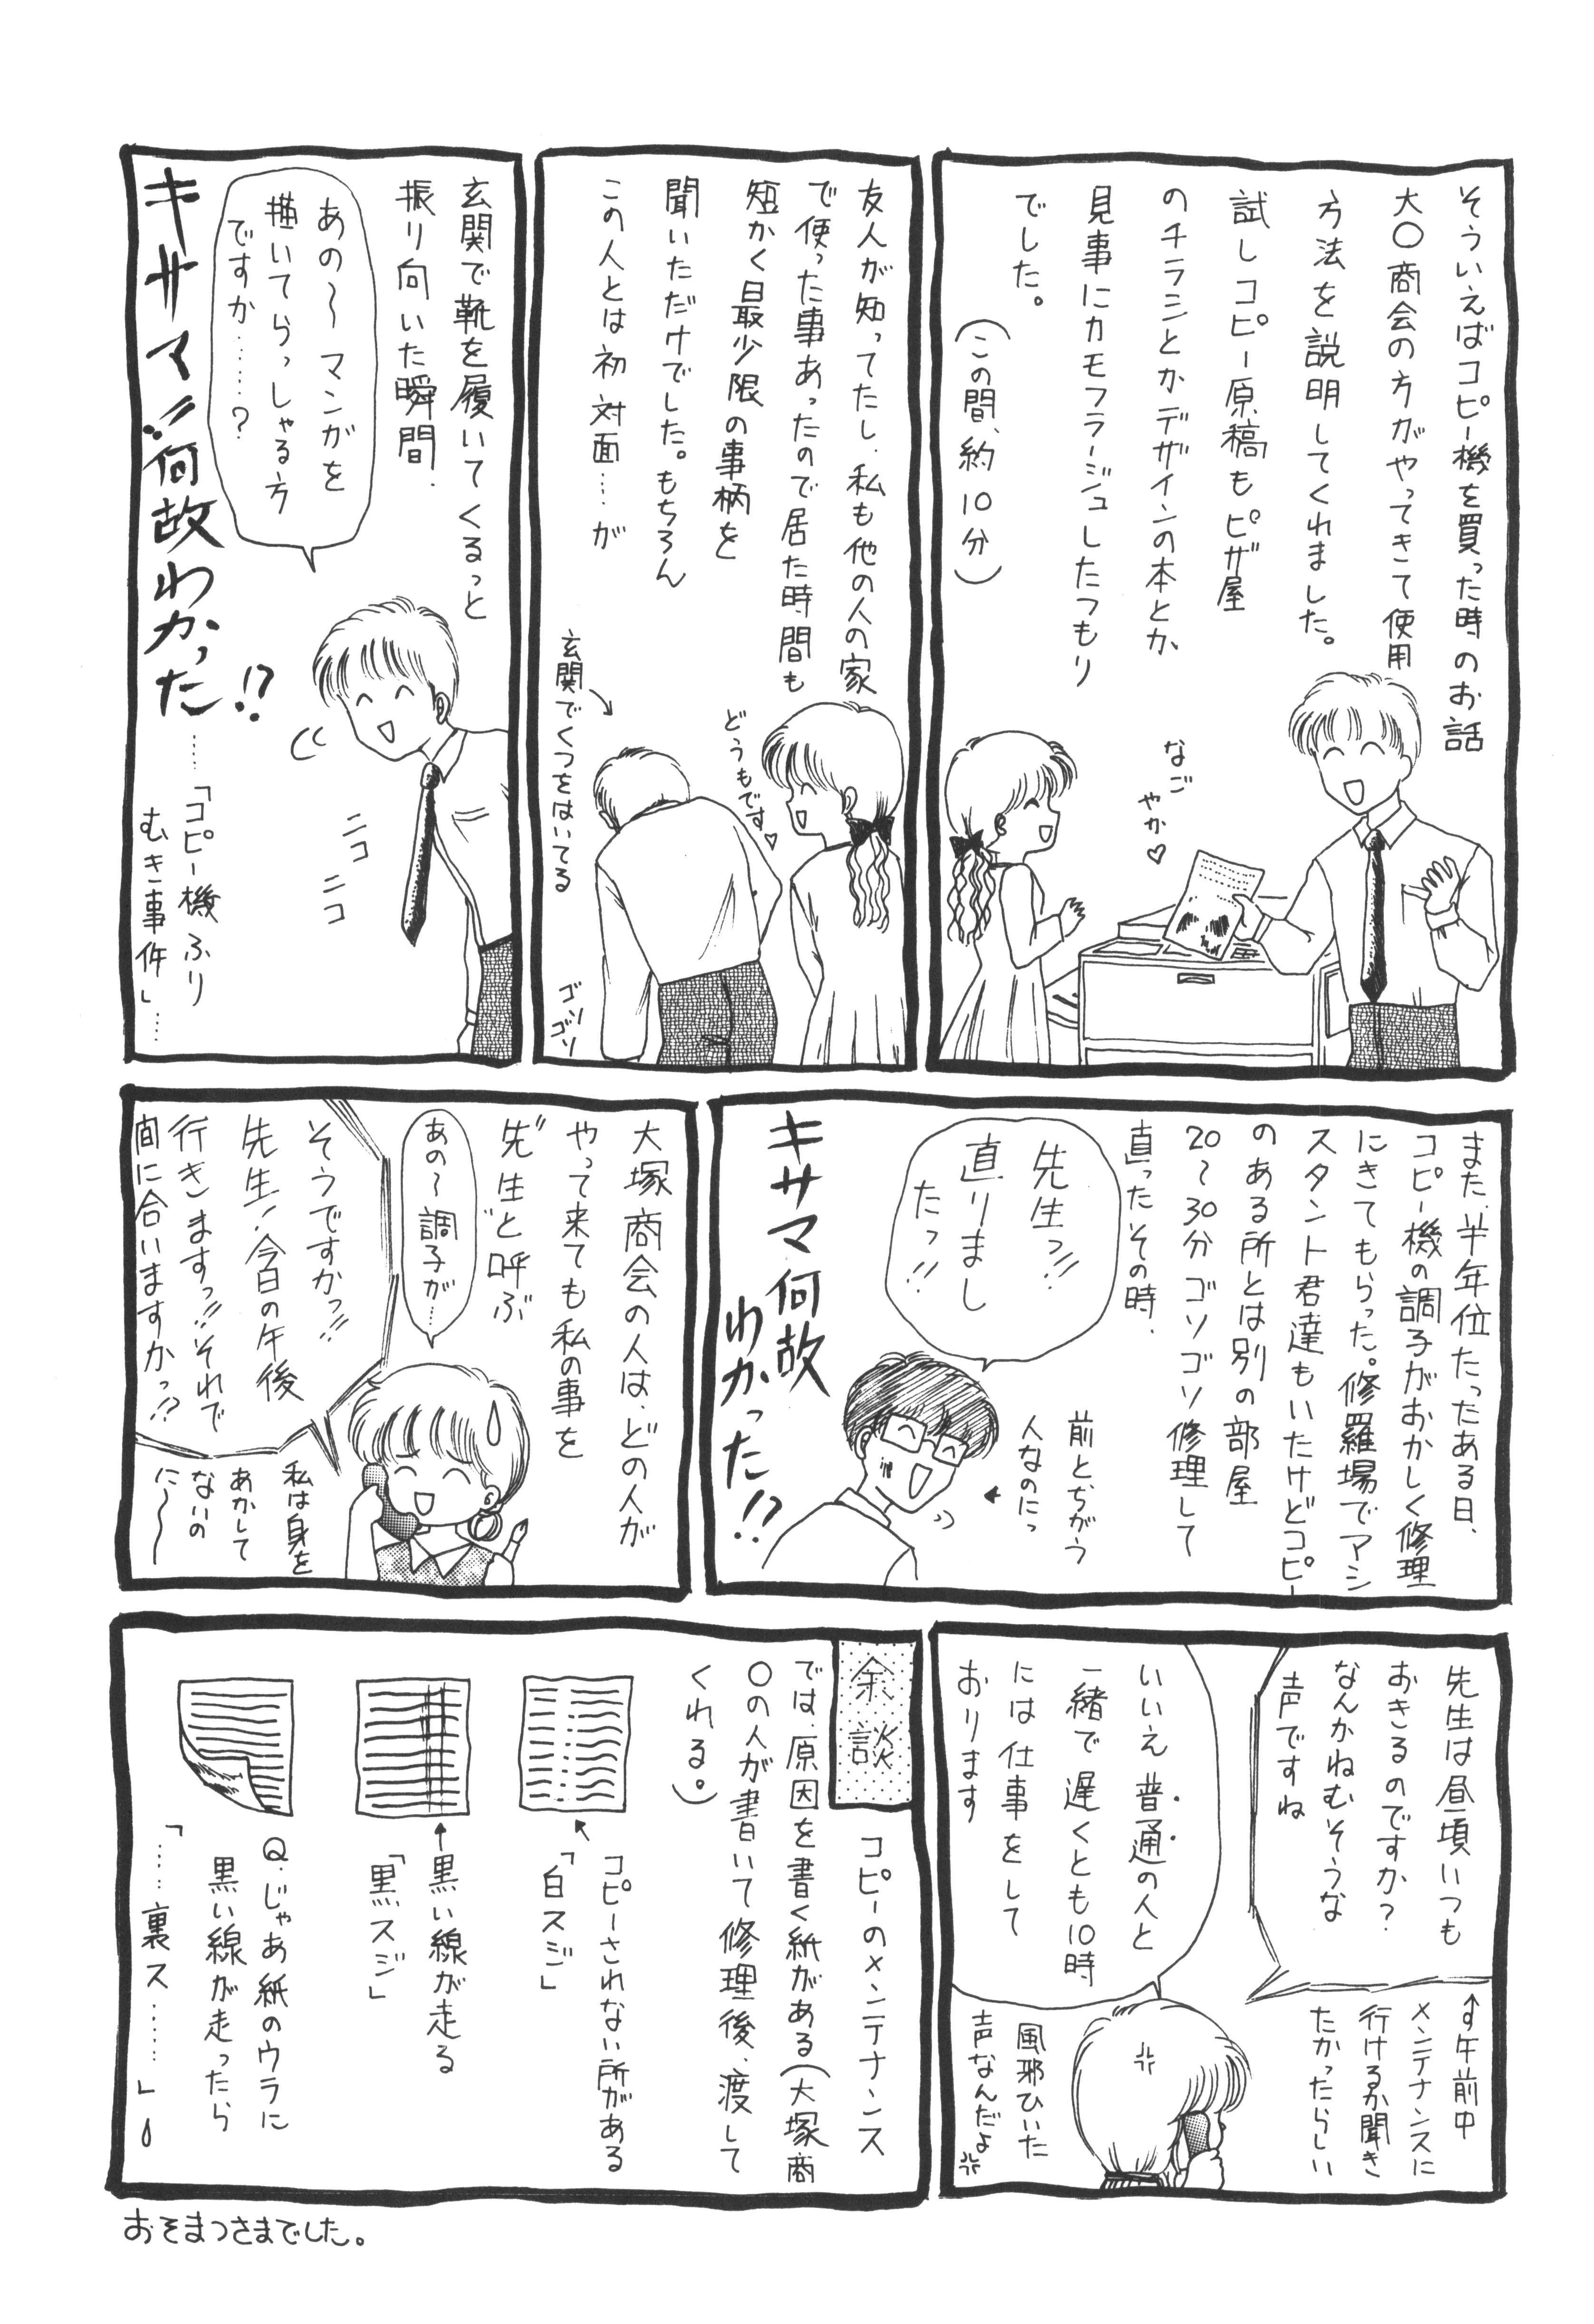 そういえばコピー機を買った時のお話
大〇商会の方がやってきて使用
方法を説明してくれました。
試しコピー原稿もピザ屋
のチラシとかデザインの本とか
見事にカモフラージュしたつもり
でした。
(この間、約10分)
なご
やか♡
友人が知ってたし、私も他の人の家
で使った事あったので居た時間も
短かく最少限の事柄を
聞いただけでした。もちろん
この人とは初対面…が
どうもです♡
玄関でくつをはいてる
ゴソ
ゴソ
玄関で靴を履いてくるっと
振り向いた瞬間.
あの〜マンガを
描いてらっしゃる方
ですか……?
キサマ!!何故わかった!?
……「コピー機ふり
むき事件」……
ニコ
ニコ
また、半年位たったある日、
コピー機の調子がおかしく修理
にきてもらった。修羅場でアシ
スタント君達もいたけどコピー
のある所とは別の部屋
20〜30分ゴソゴソ修理して
直ったその時、
先生っ!!
直りまし
たっ!!
前とちがう
人なのにっ
キサマ何故
わかった!?
大塚商会の人は、どの人が
やって来ても私の事を
"先生"と呼ぶ
あの〜調子が…
そうですかっ!!
先生!今日の午後
行きますっ!!それで
間に合いますかっ!?
私は身を
あかして
ないの
に〜〜
先生は昼頃いつも
おきるのですか?
なんかねむそうな
声ですね
↑す午前中
メンテナンスに
行けるか聞き
たかったらしい
いいえ普通の人と
一緒で遅くとも10時
には仕事をして
おります
風邪ひいた
声なんだよ
余談
コピーのメンテナンス
では、原因を書く紙がある(大塚商
〇の人が書いて修理後、渡して
くれる。)
コピーされない所がある
「白スジ」
黒い線が走る
「黒スジ」
Q.じゃあ紙のウラに
黒い線が走ったら
「……裏ス……」
おそまつさまでした。